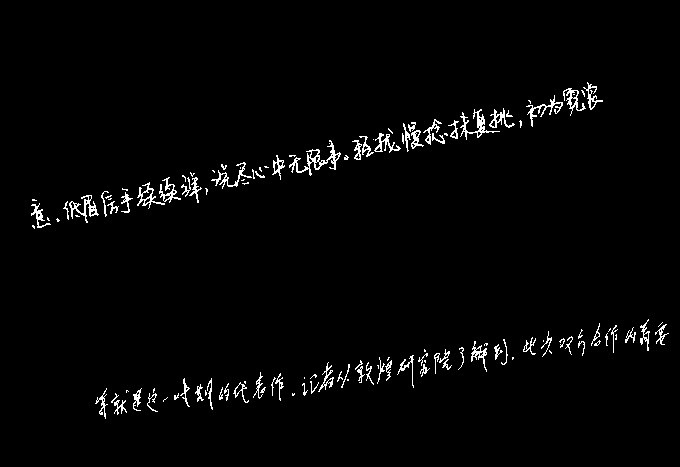 意。低眉信手续续弹,说尽心中无限事。轻拢慢捻抹复挑,初为霓裳
等就是这一时期的代表作。记者从敦煌研究院了解到,此次双方合作的首要